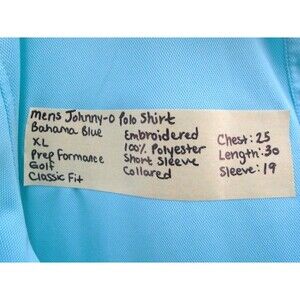 Mens Johnny-O Polo Shirt
Bahama Blue
XL
Prep Formance
Golf
Classic Fit
Embroidered
100% Polyester
Short Sleeve
Collared
Chest: 25
Length: 30
Sleeve: 19